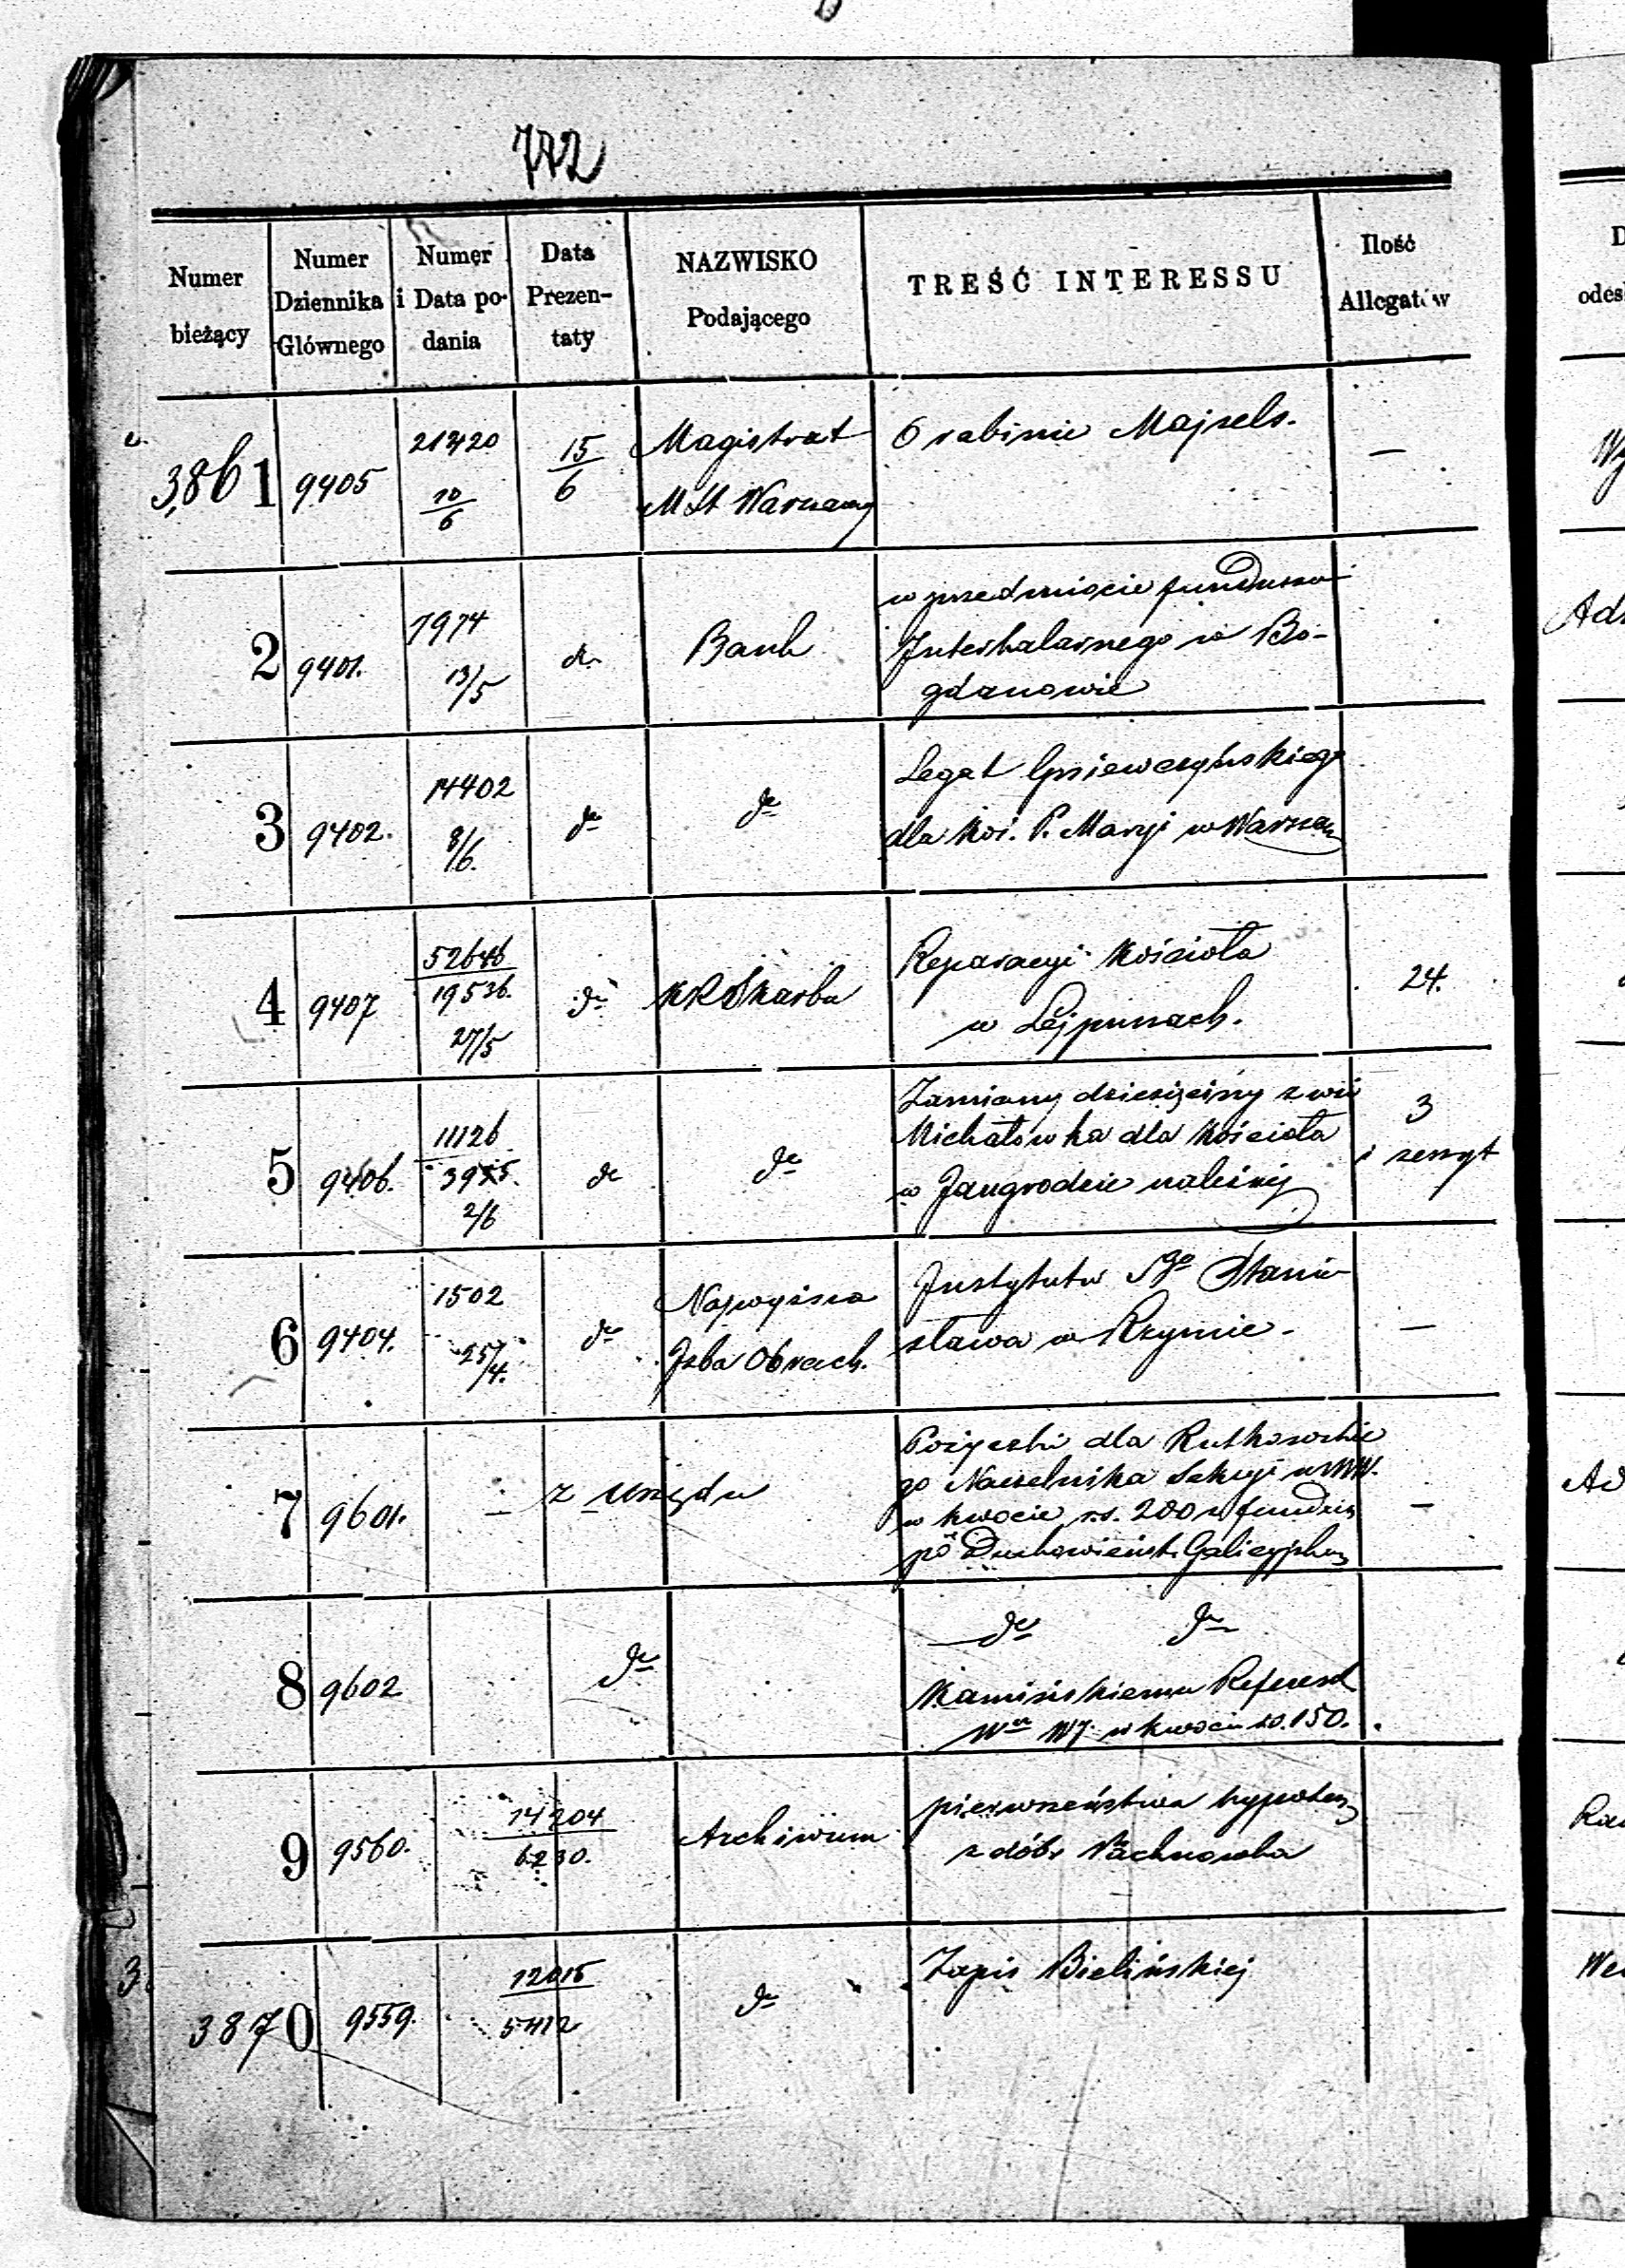 772
Numer bieżący
Numer Dziennika Głównego
Numer i Data podania
Data Prezentaty
NAZWISKO Podającego
TREŚĆ INTERESSU
Ilość Allegatów
3861 9405 21420 10/6 15/6 Magistrat O rabinie Majzels. —
MSt Warszawy
2 9401. 7974 13/5 do Bank w przedmiocie funduszu
Interkalarnego w Bo-
gdanowie
3 9402. 14402 8/6. do do Legat
dla Koś. P. Maryi w Warszaw
4 9407 52646 19536. 27/5 do KRSkarbu Reparacyi Kościoła 24.
w Lejpunach.
5 9406. 11126 3955. 2/6 do do Zamiany dziesięciny z wsi 3
Michałówka dla Kościoła i zeszyt
w Jangrodzie należnej
6 9404. 1502 25/4. do Najwyższa Instytutu Sgo Stani- —
Izba Obrach. sława w Rzymie.
7 9601. — z urzędu Pożyczki dla Rutkowskie
go Naczelnika Sekcyi w —
w kwocie r.s. 200 z fundusz
po Duchowieńst. Galicyjskim
8 9602 do do do
Kamińskiemu Referend
w kwocie rs. 150.
9 9560. 14204 6230. Archiwum pierwszeństwa hypotecz
z dóbr
3870 9559. 12015 5412 do Zapis Bielińskiej
3.